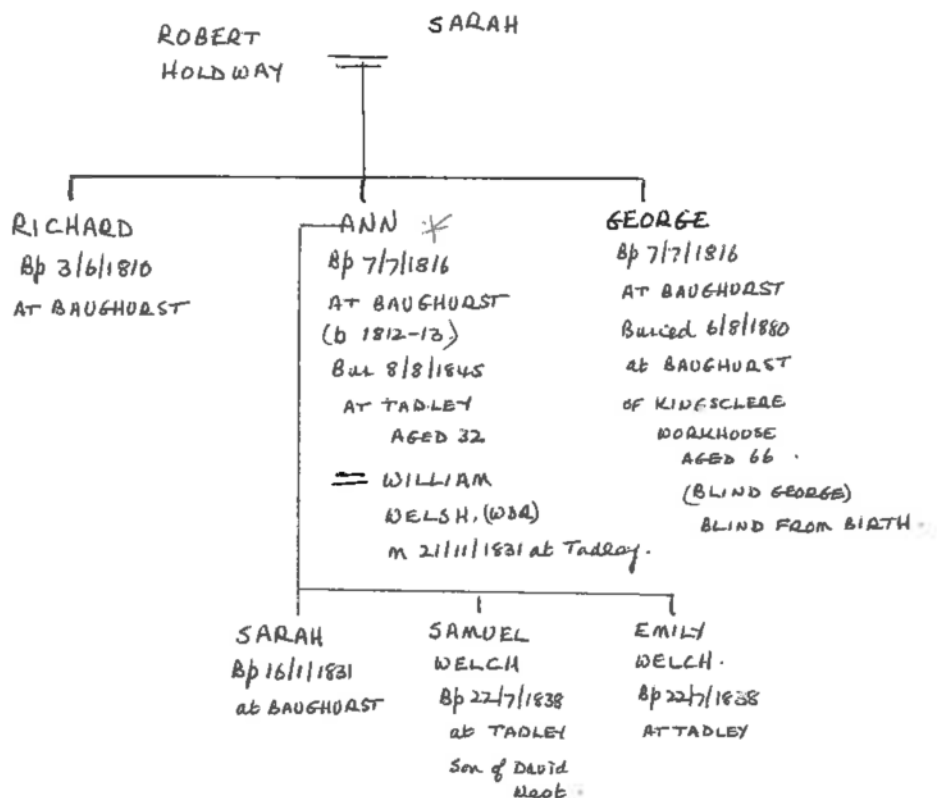 ROBERT
HOLDWAY
SARAH
RICHARD
Bp 3/6/1810
AT BAUGHURST
ANN *
Bp 7/7/1816
AT BAUGHURST
(b 1812-13)
Bur 8/8/1845
AT TADLEY
AGED 32
= WILLIAM
WELSH. (WDR)
m 21/11/1831 at Tadley.
GEORGE
Bp 7/7/1816
AT BAUGHURST
Buried 6/8/1880
at BAUGHURST
OF KINGSCLERE
WORKHOUSE
AGED 66.
(BLIND GEORGE)
BLIND FROM BIRTH.
SARAH
Bp 16/1/1831
at BAUGHURST
SAMUEL
WELCH
Bp 22/7/1838
at TADLEY
Son of David
EMILY
WELCH.
Bp 22/7/1838
AT TADLEY